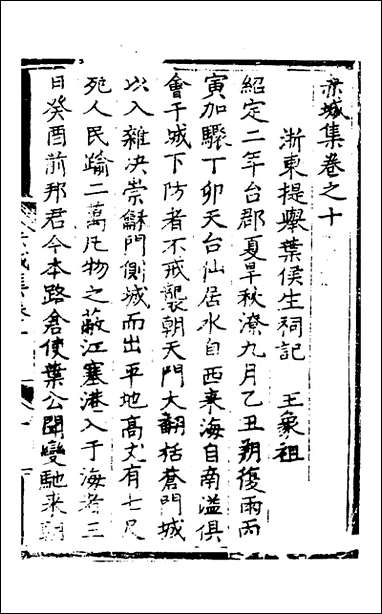 赤城集卷之十
浙東提舉葉侯生祠記 王象祖
紹定二年台郡夏旱秋潦九月乙丑朔復雨丙
寅加驟丁卯天台仙居水自西來海自南溢俱
會于城下防者不戒襲朝天門大翻括蒼門城
以入雜決崇龢門側城而出平地高丈有七尺
死人民踰二萬凡物之蔽江塞港入于海者三
日癸酉前邦君今本路倉使葉公聞變馳來